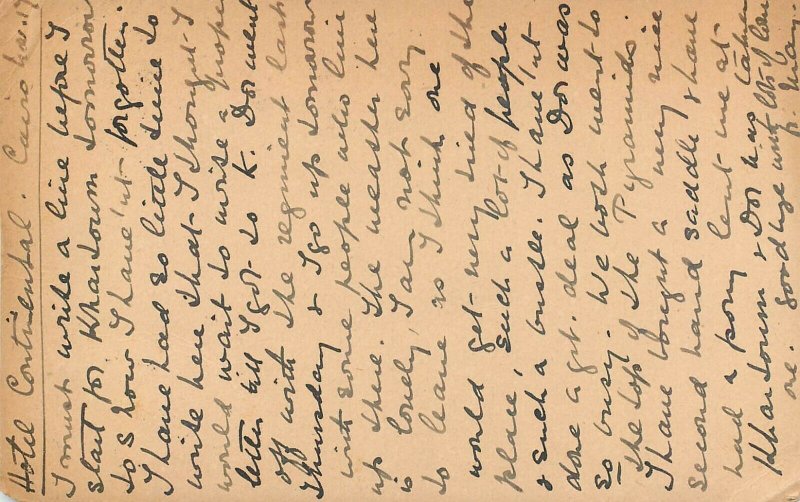 Hotel Continental. Cairo Nov. 17
I must write a line before I
start for Khartoum tomorrow
to show I have'nt forgotten.
I have had so little time to
write here that I thought I
would wait to write a proper
letter till I got to K. Dor went
off with the regiment last
Thursday & I go up tomorrow
with some people who live
up there. The weather here
is lovely, I am not sorry
to leave as I think one
would get very tired of the
place, such a lot of people
& such a bustle. I have'nt
done a grt. deal as Dor was
so busy. We both went to
the top of the Pyramids.
I have bought a very nice
second hand saddle & have
had a pony lent me at
Khartoum & Dor has taken
one. Goodbye with lots of love
May.